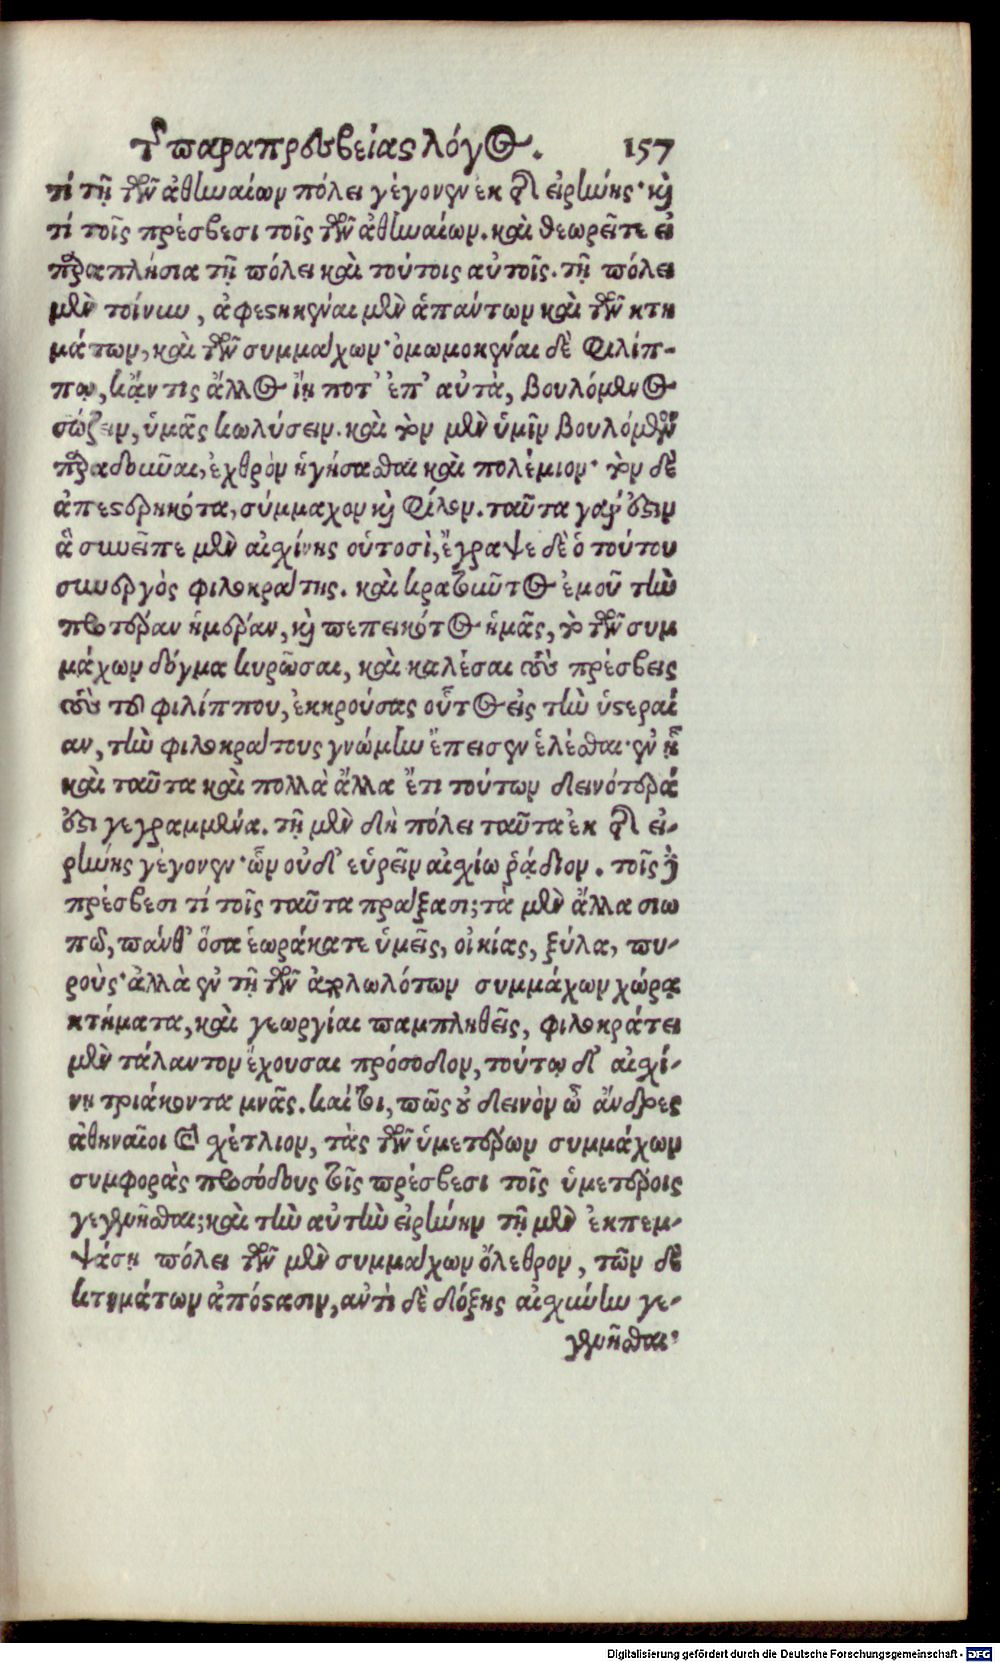 τῆς παραπρεσβείας λόγος. 157
τί τῇ τῶν ἀθηναίων πόλει γέγονεν ἐκ τῆς εἰρήνης· καὶ
τί τοῖς πρέσβεσι τοῖς τῶν ἀθηναίων. καὶ θεωρεῖτε εἰ
παραπλήσια τῇ πόλει καὶ τούτοις αὐτοῖς. τῇ πόλει
μὲν τοίνυν, ἀφεστηκέναι μὲν ἁπάντων καὶ τῶν κτη
μάτων, καὶ τῶν συμμάχων· ὀμωμοκέναι δὲ Φιλίπ-
πῳ, κἄν τις ἄλλος ἴῃ ποτ' ἐπ' αὐτὰ, βουλόμενος
σώζειν, ὑμᾶς κωλύσειν. καὶ τὸν μὲν ὑμῖν βουλόμενον
παραδοῦναι, ἐχθρὸν ἡγήσασθαι καὶ πολέμιον· τὸν δὲ
ἀπεστερηκότα, σύμμαχον καὶ Φίλον. ταῦτα γάρ ἐστιν
ἃ συνεῖπε μὲν αἰσχίνης οὑτοσὶ, ἔγραψε δὲ ὁ τούτου
συνεργὸς φιλοκράτης. καὶ κρατοῦντος ἐμοῦ τὴν
προτέραν ἡμέραν, καὶ πεπεικότος ἡμᾶς, τὸ τῶν συμ
μάχων δόγμα κυρῶσαι, καὶ καλέσαι τοὺς πρέσβεις
τοὺς τοῦ φιλίππου, ἐκκρούσας οὗτος εἰς τὴν ὑστεραί
αν, τὴν φιλοκράτους γνώμην ἔπεισεν ἑλέσθαι· ἐν ᾗ
καὶ ταῦτα καὶ πολλὰ ἄλλα ἔτι τούτων δεινότερά
ἐστι γεγραμμένα. τῇ μὲν δὴ πόλει ταῦτα ἐκ τῆς εἰ-
ρήνης γέγονεν· ὧν οὐδ' εὑρεῖν αἰσχίω ῥᾴδιον. τοῖς δὲ
πρέσβεσι τί τοῖς ταῦτα πράξασι; τὰ μὲν ἄλλα σιω
πῶ, πάνθ' ὅσα ἑωράκατε ὑμεῖς, οἰκίας, ξύλα, πυ-
ροὺς· ἀλλὰ ἐν τῇ τῶν ἀπολωλότων συμμάχων χώρᾳ
κτήματα, καὶ γεωργίαι παμπληθεῖς, φιλοκράτει
μὲν τάλαντον ἔχουσαι πρόσοδον, τούτῳ δ' αἰσχί-
νῃ τριάκοντα μνᾶς. καί τοι, πῶς οὐ δεινὸν ὦ ἄνδρες
ἀθηναῖοι καὶ σχέτλιον, τὰς τῶν ὑμετέρων συμμάχων
συμφορὰς προσόδους τοῖς πρέσβεσι τοῖς ὑμετέροις
γεγενῆσθαι; καὶ τὴν αὐτὴν εἰρήνην τῇ μὲν ἐκπεμ-
ψάσῃ πόλει τῶν μὲν συμμάχων ὄλεθρον, τῶν δὲ
κτημάτων ἀπόστασιν, ἀντὶ δὲ δόξης αἰσχύνην γε-
γενῆσθαι·
Digitalisierung gefördert durch die Deutsche Forschungsgemeinschaft - DFG